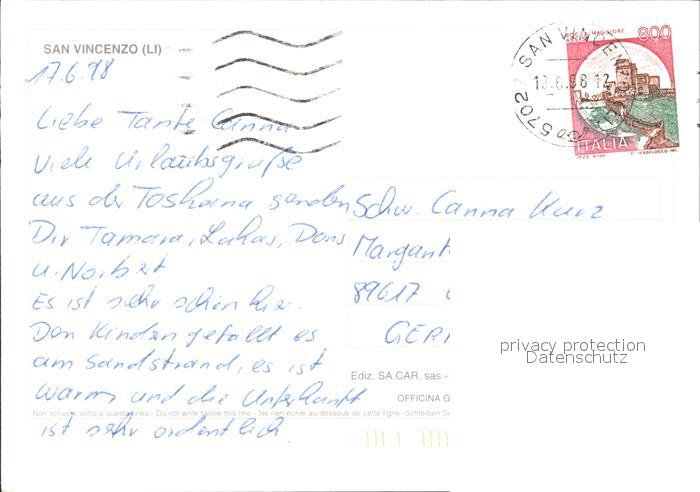 SAN VINCENZO (LI)
17.6.98
Liebe Tante Canna
Viele Urlaubsgrüße
aus der Toskana senden
Dir Tamara, Lukas, Doris
u. Norbert
Es ist sehr schön hier.
Den Kindern gefällt es
am Sandstrand, es ist
warm und die Unterkunft
ist sehr ordentlich.
800
SAN VINCENZO
57027
ITALIA
Schw. Canna Kurz
89617
GER
privacy protection
Datenschutz
Ediz. SA.CAR. sas -
OFFICINA G
Non scrivere sotto a questa linea - Do not write below this line - Ne rien écrire au-dessous de cette ligne - Schreiben S